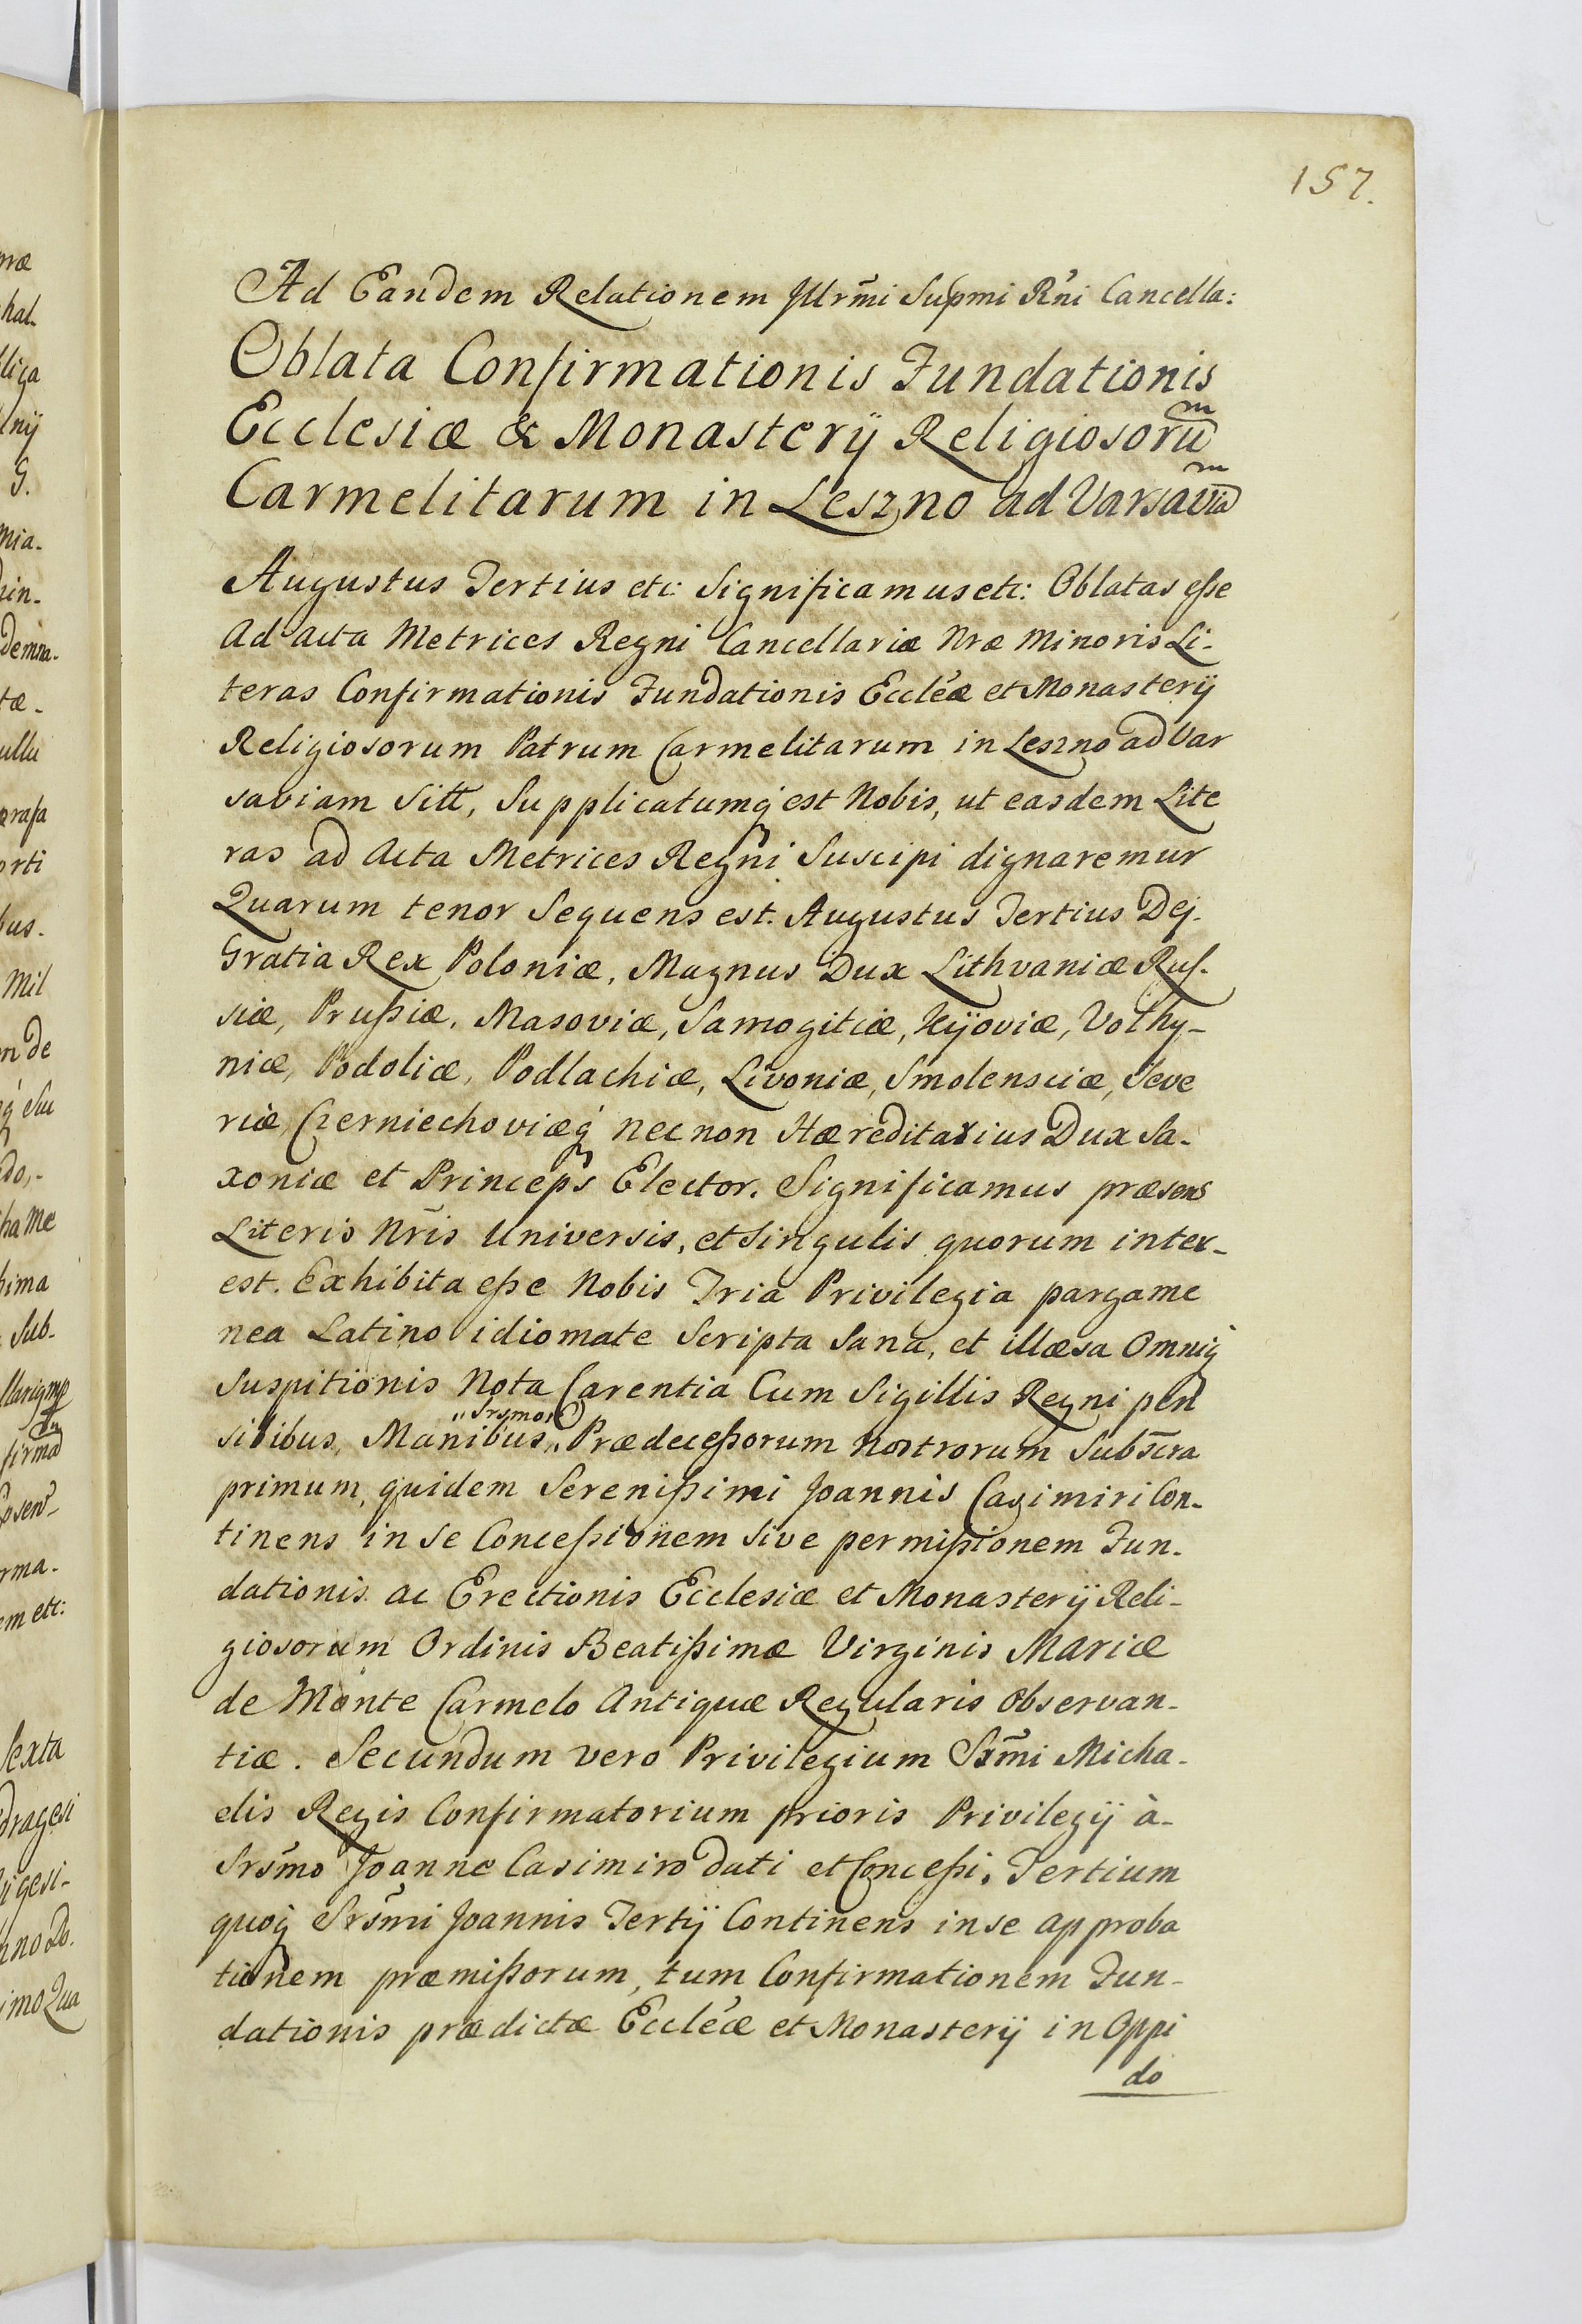 157.
Ad Eandem Relationem Jllrm̃i Supmi Rn̉i Cancella:
Oblata Confirmationis Fundationis
Ecclesiæ & Monasterij Religiosorum
Carmelitarum in Leszno ad Varsaviam
Augustus Tertius etc: Significamus etc: Oblatas esse
Ad Acta Metrices Regni Cancellariæ Nræ Minoris Li-
teras Confirmationis Fundationis Eccléæ et Monasterij
Religiosorum Patrum Carmelitarum in Leszno ad Var
saviam Sitt, Supplicatumq́ est Nobis, ut easdem Lite
ras ad Acta Metrices Regni Suscipi dignaremur
Quarum tenor Sequens est. Augustus Tertius Dej.
Gratia Rex Poloniæ, Magnus Dux Lithvaniæ Rus-
siæ, Prussiæ, Masoviæ, Samogitiæ, Kijoviæ, Volhy-
niæ, Podoliæ, Podlachiæ, Livoniæ, Smolensciæ, Seve
riæ, Czerniechoviæq́ nec non Hæreditarius Dux Sa-
xoniæ et Princeps Elector. Significamus præsens
Literis Nr̃is Universis, et Singulis quorum inter-
est. Exhibita esse Nobis Tria Privilegia pargame
nea Latino idiomate Scripta Sana, et illæsa Omniq́
Suspitionis Nota Carentia Cum Sigillis Regni pen
silibus, Manibus „Srsmor„ Prædecessorum Nostrorum Subscra
primum, quidem Serenissimi Joannis Casimiri Con-
tinens in Se Concessionem Sive permissionem Fun-
dationis ac Erectionis Ecclesiæ et Monasterij Reli-
giosorum Ordinis Beatissimæ Virginis Mariæ
de Monte Carmelo Antiquæ Regularis Observan-
tiæ. Secundum vero Privilegium Srm̃i Micha-
elis Regis Confirmatorium prioris Privilegij à-
Srs̃mo Joanne Casimiro dati et Concessi, Tertium
quoq́ Srs̃mi Joannis Tertij Continens in se approba
tionem præmissorum, tum Confirmationem Fun-
dationis prædictæ Eccléæ et Monasterij in Oppi
do